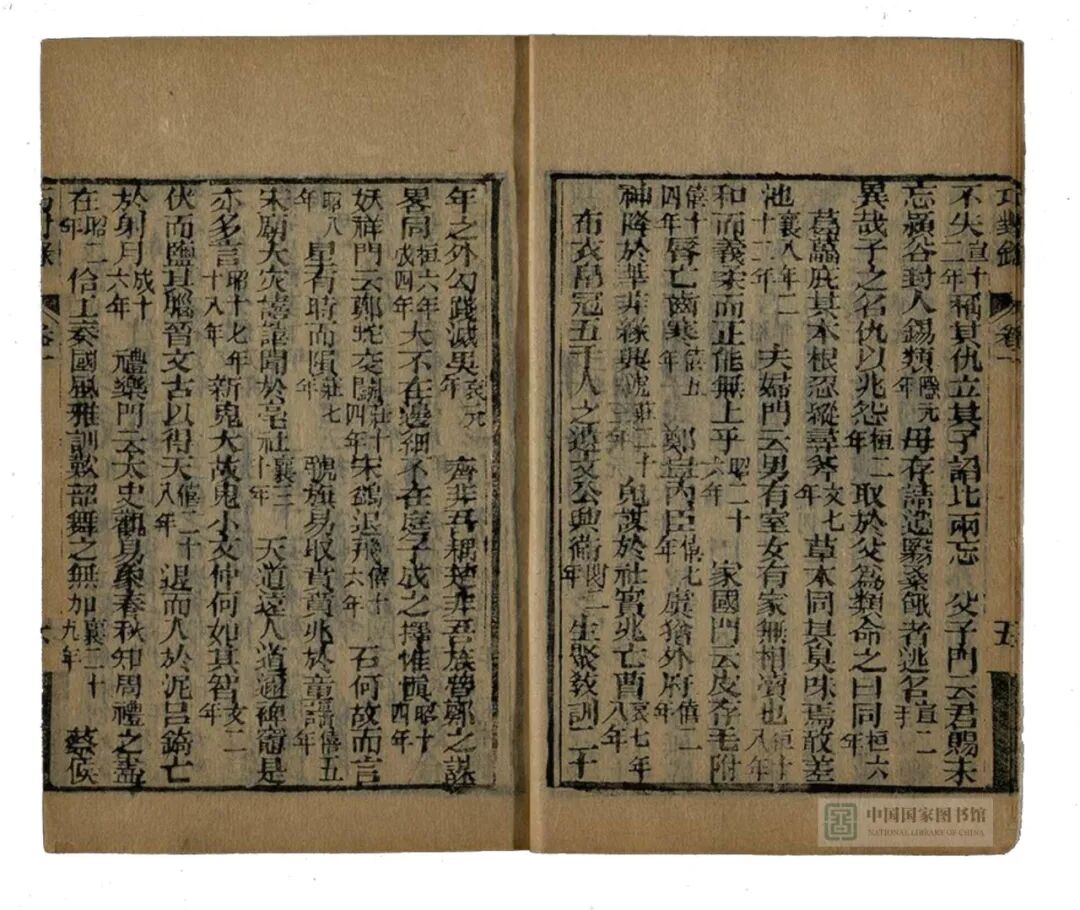 巧對錄 卷一 五
不失宣十二年稱其仇立其子諂比兩忘 父子門云君賜未
忘潁谷封人錫類隱元年母存請遺翳桑餓者逃名宣二年
異哉子之名仇以兆怨桓二年取於父為類命之曰同桓六年
葛藟庇其本根忍縱尋斧文七年草木同其臭味焉敢差
池襄八年二十二年 夫婦門云男有室女有家無相瀆也桓十八年
和而義柔而正能無上乎昭二十六年 家國門云皮存毛附
僖十四年脣亡齒寒僖五年 鄭量內臣僖七年虞猶外府僖二年
神降於莘非緣興虢莊三十二年鬼謀於社實兆亡曹哀七年八年
布衣帛冠五千人之遺文公興衞閔二年生聚教訓二十
年之外勾踐滅吳哀元年 齊非吾耦楚非吾族魯鄭之謀
畧同桓六年成四年大不在邊細不在庭子之擇惟慎昭十年
妖祥門云鄭蛇交鬭莊十四年宋鷁退飛僖十六年 石何故而言
昭八年星有時而隕莊七年 虢旂易取賁賁兆於童謠僖五年
宋廟大災譆譆聞於亳社襄三十年 天道遠人道邇裨竈是
亦多言昭十七年十八年新鬼大故鬼小文仲何如其智文二年
伏而鹽其腦晉文古以得天僖二十八年退而入於泥呂錡亡
於射月成十六年 禮樂門云大史觀易象春秋知周禮之盡
在昭二年工奏國風雅訓歎韶舞之無加襄二十九年 蔡侯
巧對錄 卷一 六
中国国家图书馆
NATIONAL LIBRARY OF CHINA